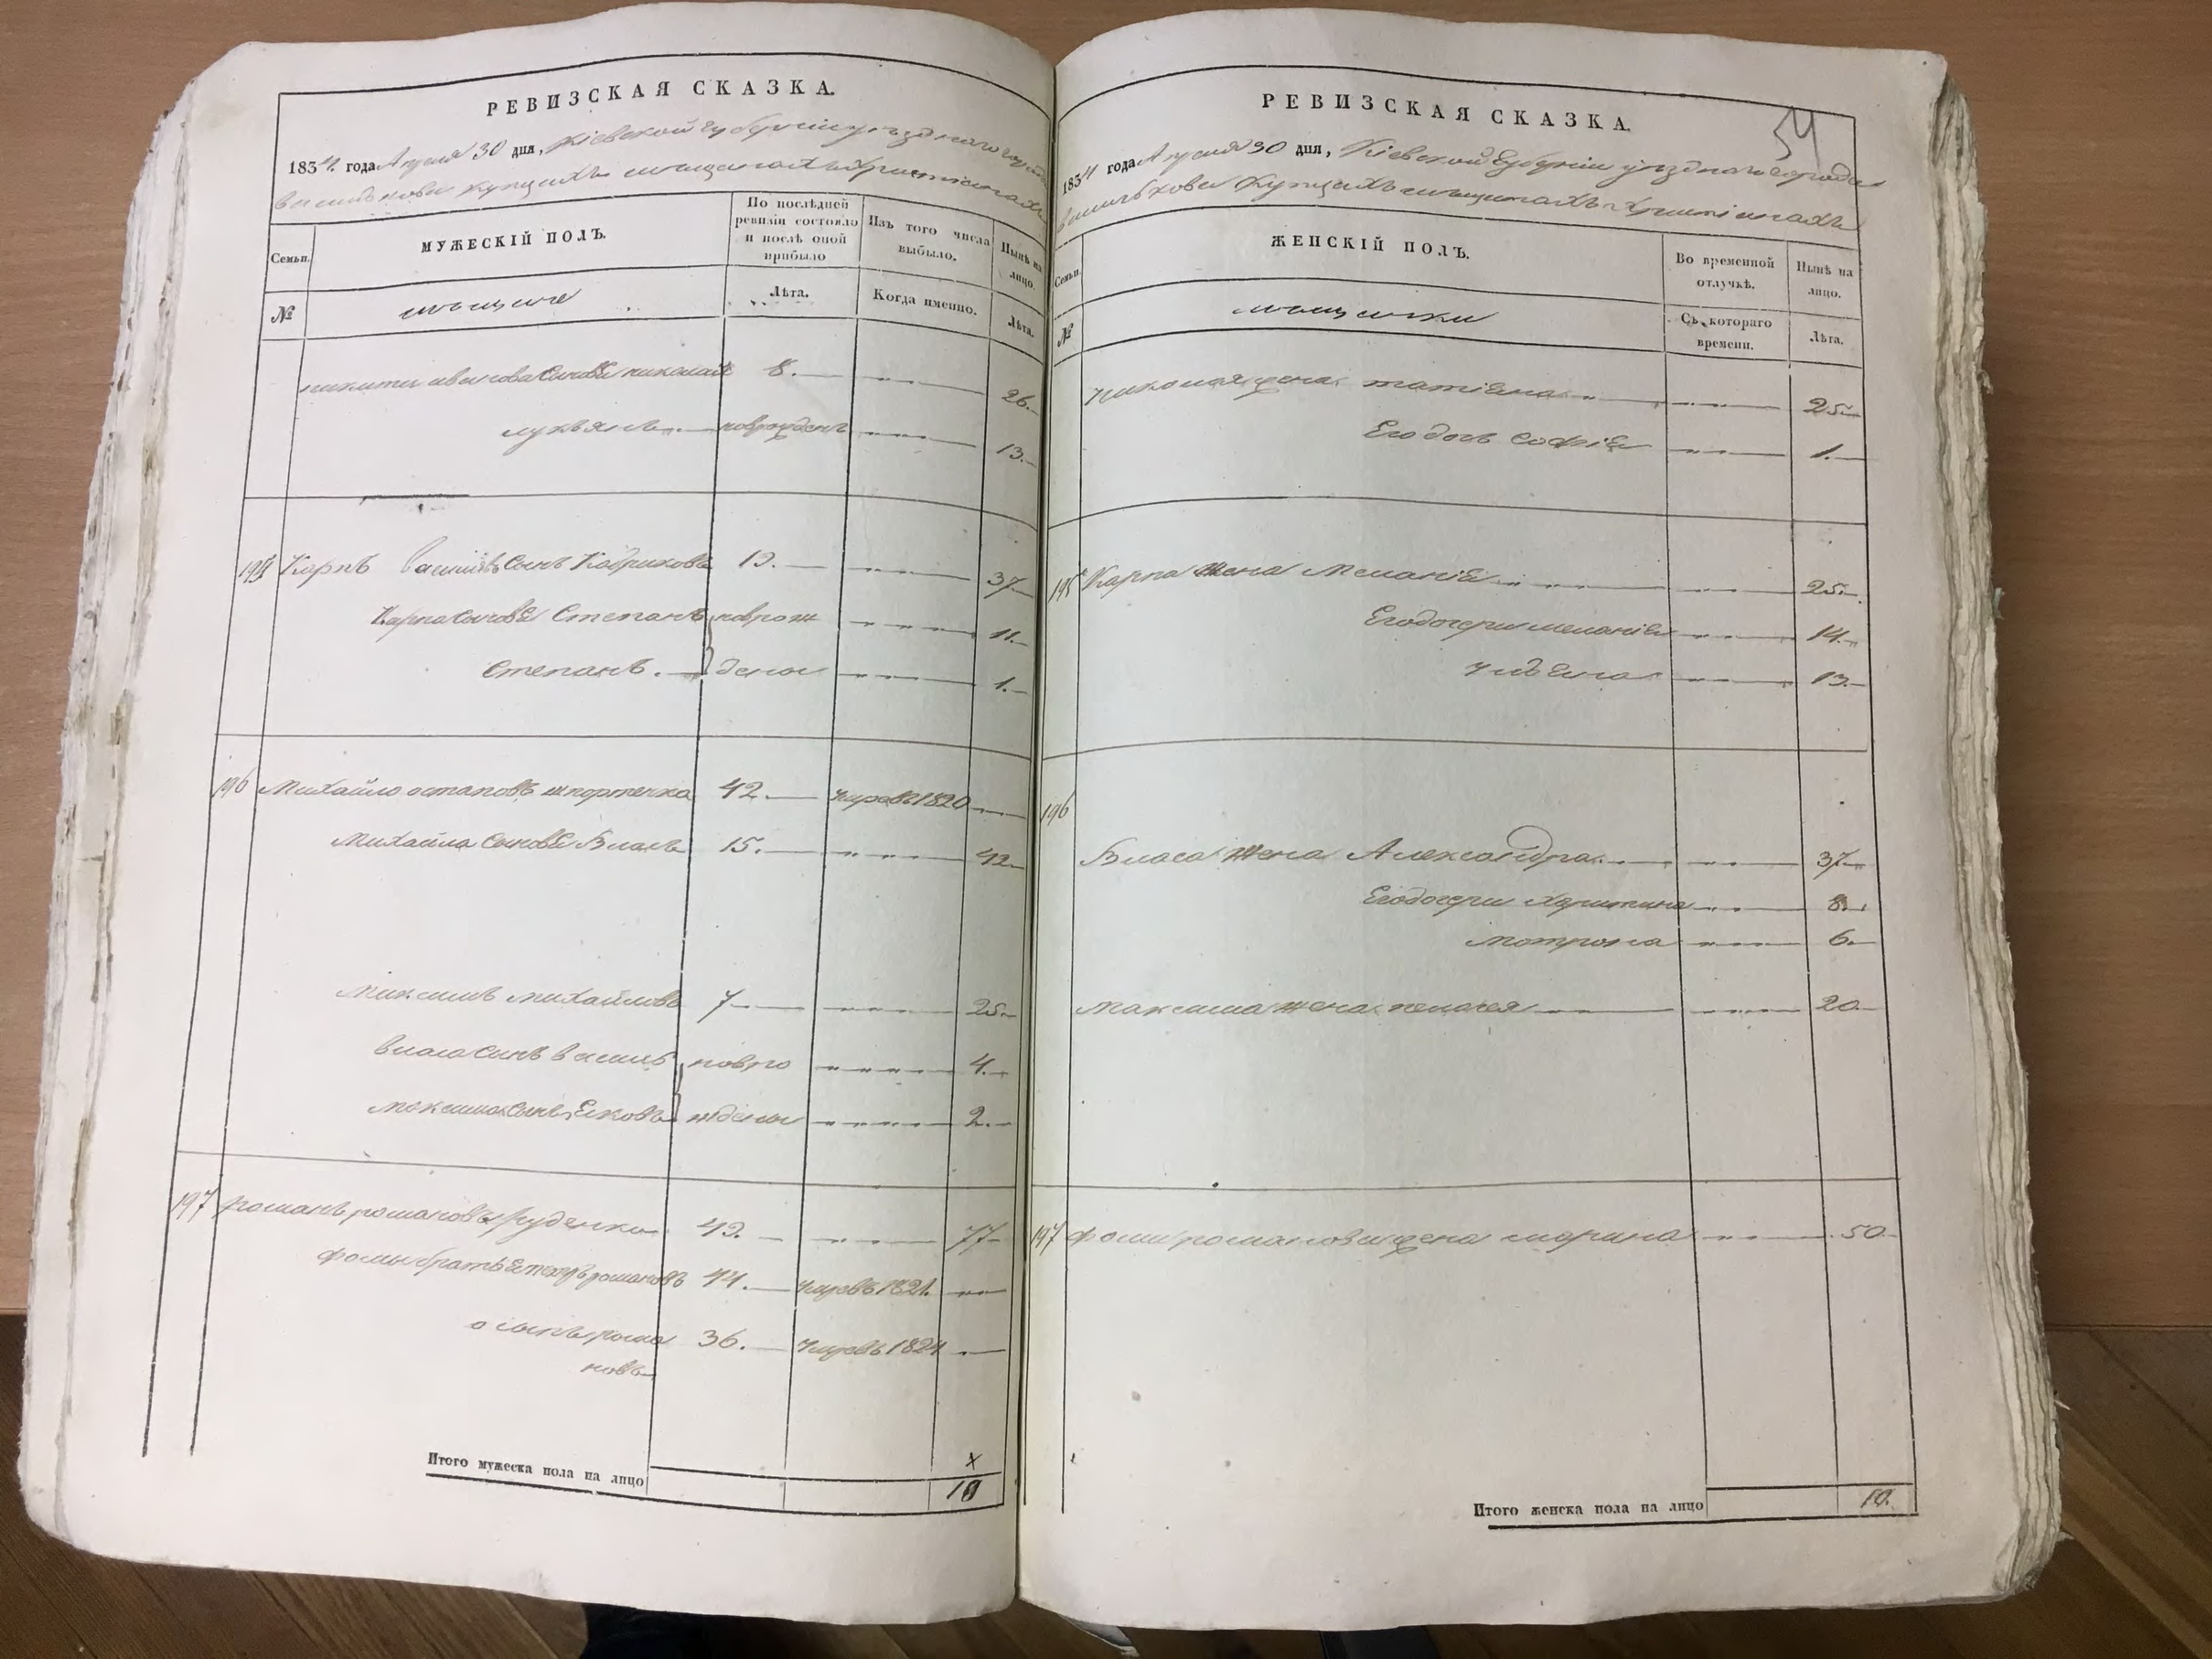 РЕВИЗСКАЯ СКАЗКА.
1834. года Апреля 30 дня, Кіевской губерніи уезднаго города
василькова купцахъ мещанахъ христіанахъ
Семьи.
МУЖЕСКІЙ ПОЛЪ.
По послѣдней ревизіи состояло и послѣ оной прибыло
Изъ того числа выбыло.
Нынѣ на лицо.
№
мещане
Лѣта.
Когда именно.
Лѣта.
никиты иванова сыновя николай 8. 26.
лукъянъ новрожденъ 13.
195 Карпъ васильевъ сынъ 19. 37
Карпа сыновя Степанъ новрож 11.
Степанъ. дены 1.
196 Михайло остаповъ шпортенко 42. умре въ 1820
Михайла сыновя Власъ 15. 42
максимъ михайловъ 7 25
власа сынъ василь новро 4.
максима сынъ Яковъ ждены 2.
197 романъ романовъ руденко 43. 77
фомы братъ романовъ 44. умре въ 1821.
осипъ рома 36. умре въ 1824
новъ
Итого мужеска пола на лицо 10
РЕВИЗСКАЯ СКАЗКА.
54
1834 года Апреля 30 дня, Кіевской Губерніи уезднаго города
василькова Купцахъ мещанахъ христіанахъ
Семьи.
ЖЕНСКІЙ ПОЛЪ.
Во временной отлучкѣ.
Нынѣ на лицо.
№
мещанки
Съ котораго времени.
Лѣта.
николая жена татіяна 25
Его дочь софія 1.
195 Карпа жена Меланія 25.
Его дочери меланія 14.
улияна 13.
196
Власа жена Александра 37
Его дочери Харитина 8.
мотрона 6.
максима жена пелагея 20
197 фомы романова жена марина 50
Итого женска пола на лицо 10.